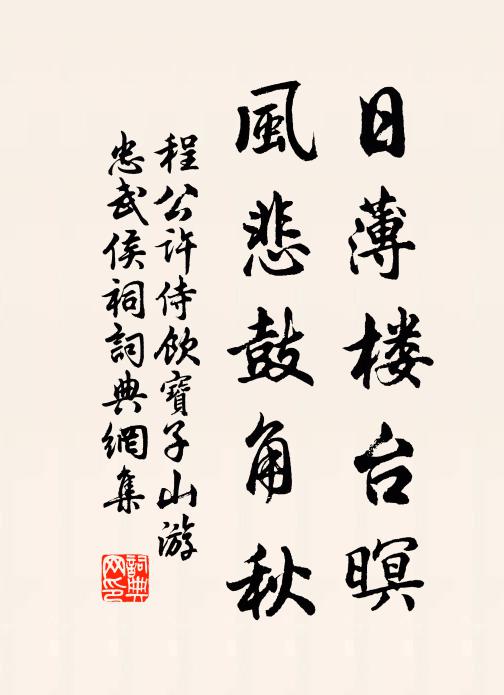 日薄楼台暝
風悲鼓角秋
程公许侍飲寶子山游
忠武侯祠詞典網集
詞典网印